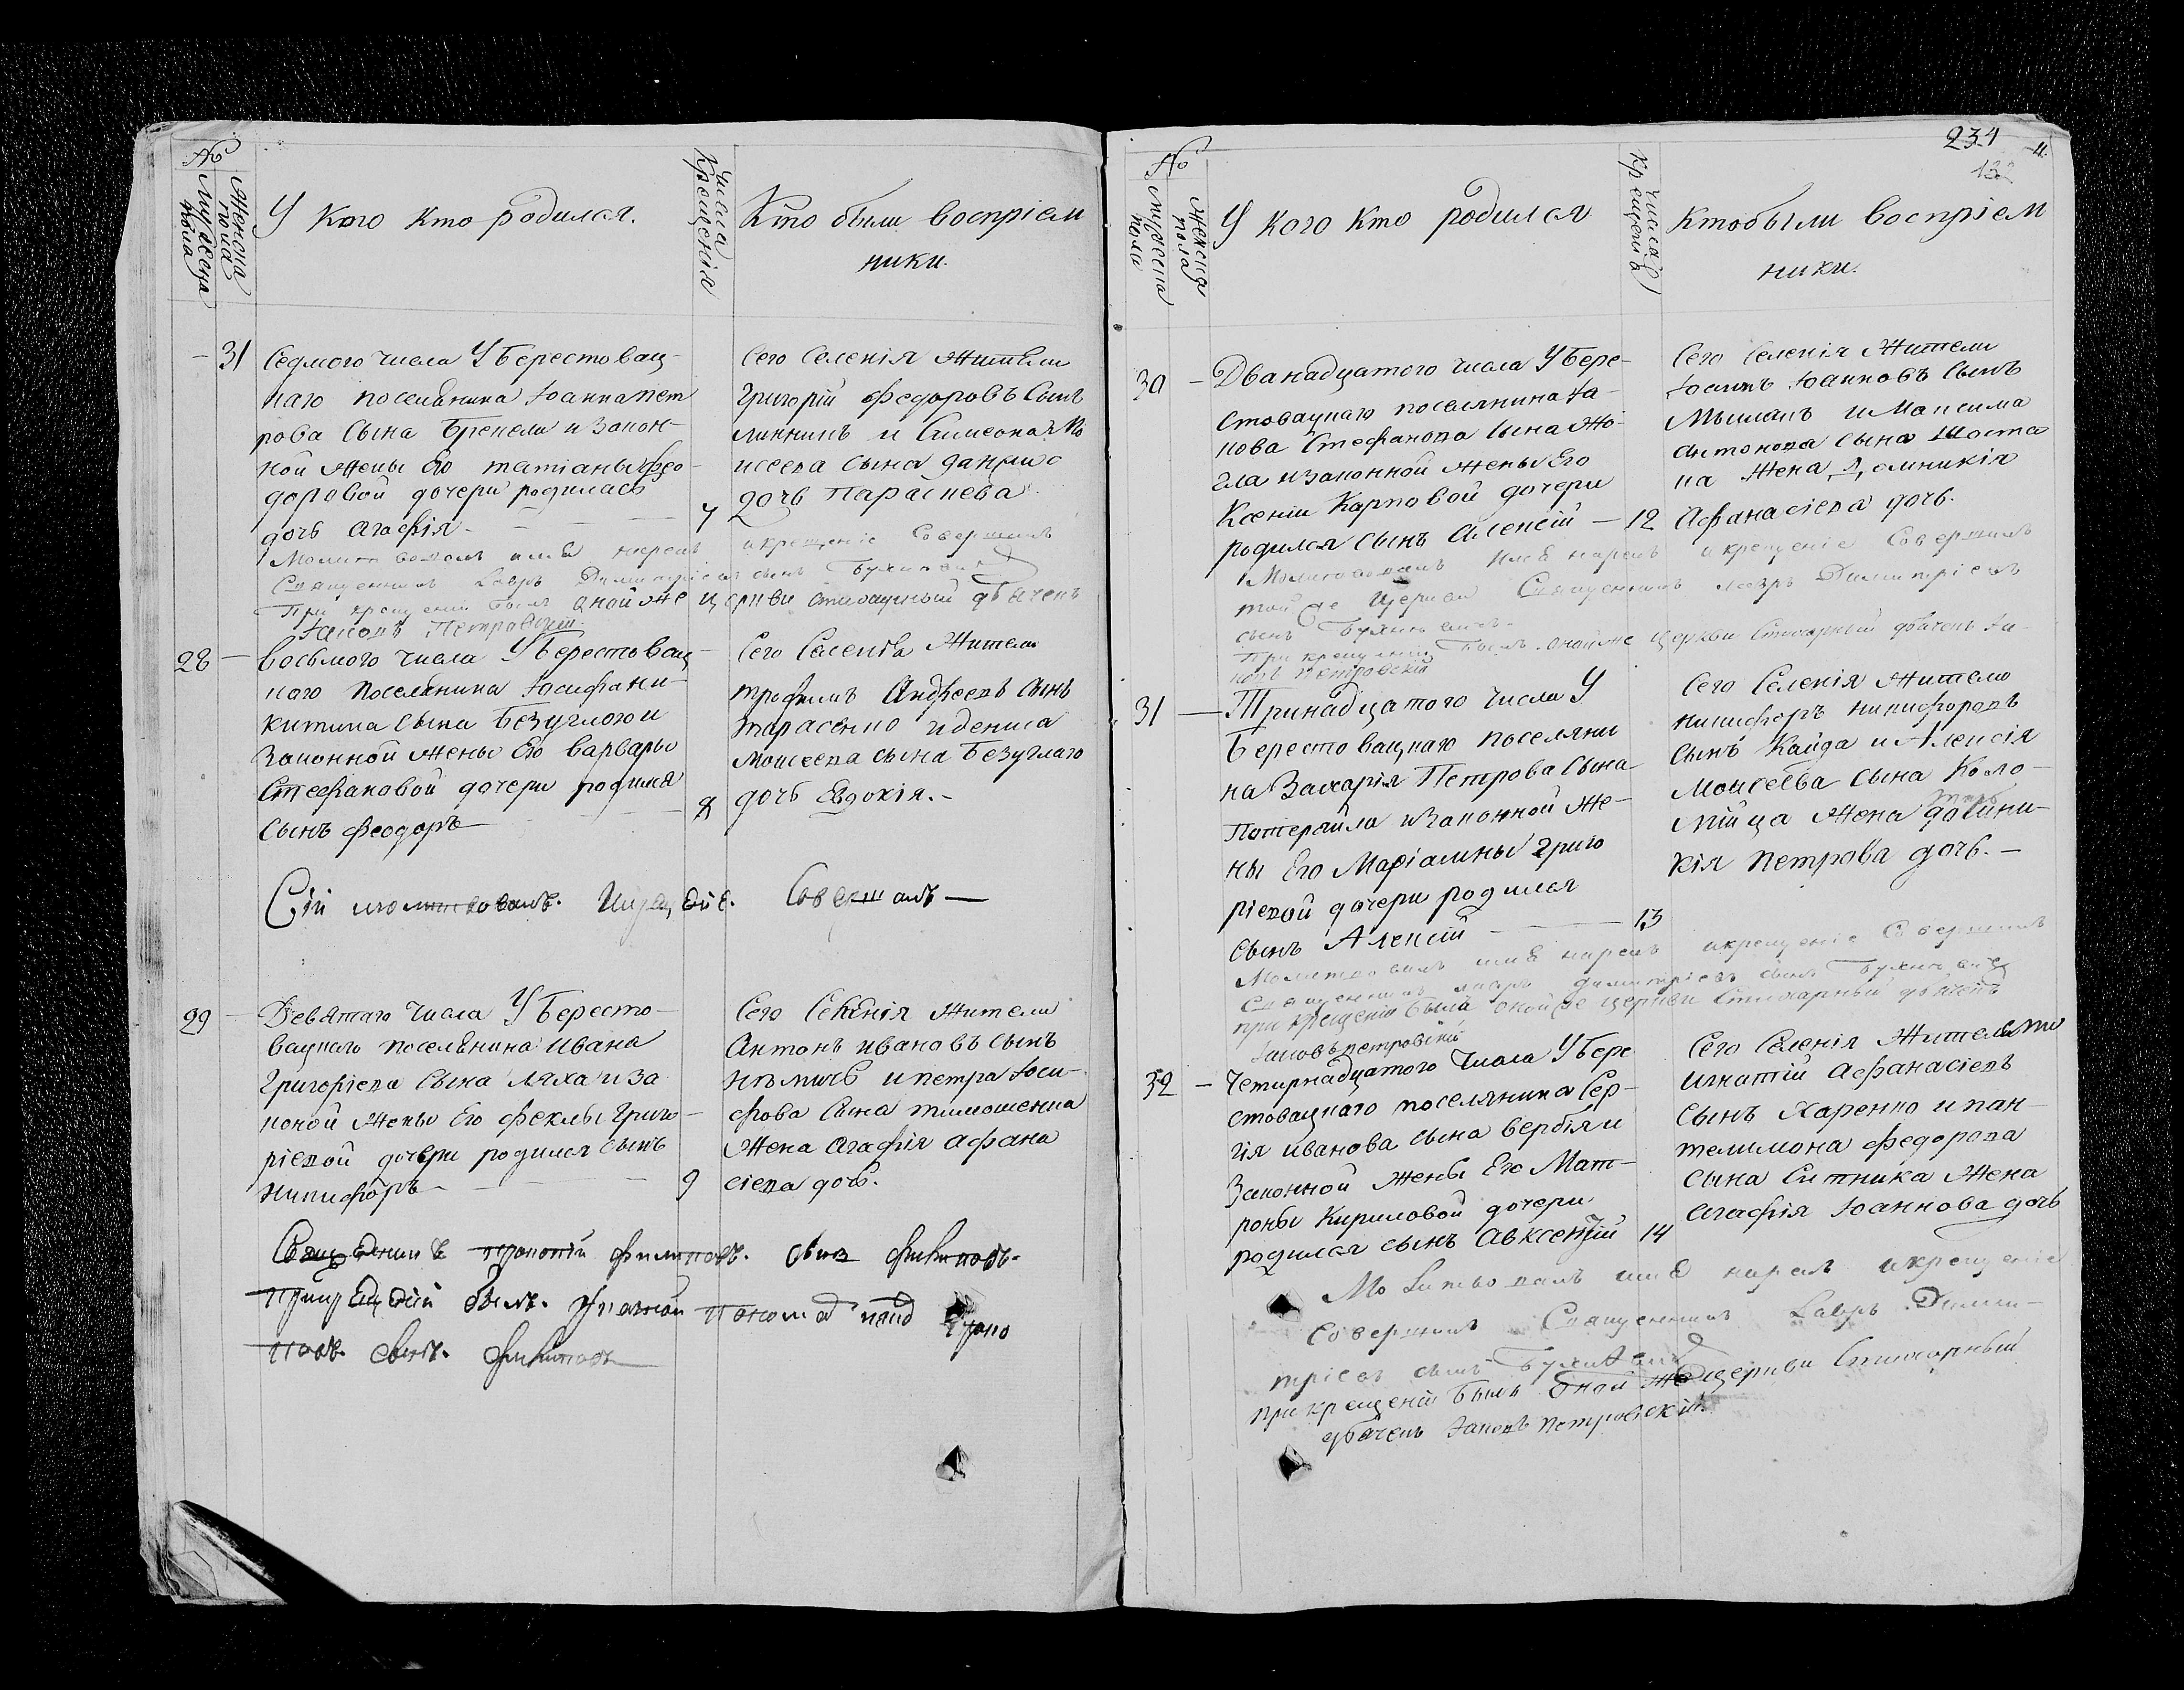 №
Мужеска пола
Женска пола
У кого кто родился.
Числа Крещенія
Кто были восприем
ники.
31
Седмого числа У Берестовац-
каго поселянина Іоанна пет
рова Сына Брепела и закон-
ной жены Его татіаны фео-
доровой дочери родилась
дочь агафія
7
Сего Селенія жители
Григорій Федоровъ Сынъ
и Симеона
исеева сына
дочь Параскева
имя нарекъ и крещеніе Совершилъ
Священникъ Лавръ Димитріевъ сынъ
При крещеніи былъ оной же церкви стихарный дьячекъ
Іаковъ Петровскій
28
восьмого числа У Берестовац
кого Поселянина Іосифа ни-
китина сына Безуглого и
Законной жены Его варвары
Стефановой дочери родился
сынъ феодоръ
8
Сего Селенія жители
трофимъ Андреевъ сынъ
тарасенко и дениса
Моисеева сына Безуглаго
дочь Евдокія.-
Сій молитвовалъ. Совершалъ
29
Девятаго числа У Бересто-
вацкаго поселянина ивана
Григоріева сына ляха и за
коной жены Его феклы Григо-
ріевой дочери родился сынъ
никифоръ
9
Сего Селенія жители
Антонъ ивановъ сынъ
и петра Іоси-
фова Сына тимошенка
жена агафія афана
сіева дочь.
Священникъ филиповъ. сынъ филиповъ.
былъ. пономар
сынъ. филиповъ
234
132
№
Мужеска пола
Женска пола
У кого кто родился
Числа Крещенія
Кто были восприем
ники.
30
Дванадцатого числа У Бере-
стовацкаго поселянина Іа-
кова Стефанова сына Жо-
гла и законной жены Его
Ксеніи Карповой дочери
родился сынъ алексій
12
Сего Селенія Жители
Іоаннъ Іоанновъ сынъ
и Максима
антонова сына Шоста
ка жена Домникія
Афанасіева дочь.
Молитвовалъ имя нарекъ и крещеніе Совершилъ
той же церкви Священникъ лавръ Димитріевъ
сынъ
При крещеніи былъ оной же церкви Стихарный дьячекъ Іа-
ковъ Петровскій
31
Тринадцатого числа У
Берестовацкаго поселяни
на Захарія Петрова Сына
Потерайла и законной же-
ны Его Маріамны григо
ріевой дочери родился
сынъ Алексій
13
Сего Селенія жители
никифоръ никифоровъ
сынъ Кайда и Алексія
Моисеева сына Коло-
мійца жена домни-
кія петрова дочь.-
Молитвовалъ имя нарекъ и крещеніе Совершилъ
Священникъ лавръ димитріевъ сынъ
при крещеніи былъ оной же церкви Стихарный дьячекъ
Іаковъ петровскій
32
Четырнадцатого числа У Бере
стовацкаго поселянина Сер-
гія иванова сына вербія и
Законной жены Его Мат-
роны Кириловой дочери
родился сынъ авксентій
14
Сего Селенія Жители
игнатій афанасіевъ
сынъ Харенко и пан-
телимона федорова
сына Ситника жена
агафія Іоаннова дочь
Молитвовалъ имя нарекъ и крещеніе
Совершилъ Священникъ Лавръ Дими-
тріевъ сынъ
при крещеніи былъ оной же церкви Стихарный
дьячекъ Іаковъ петровскій